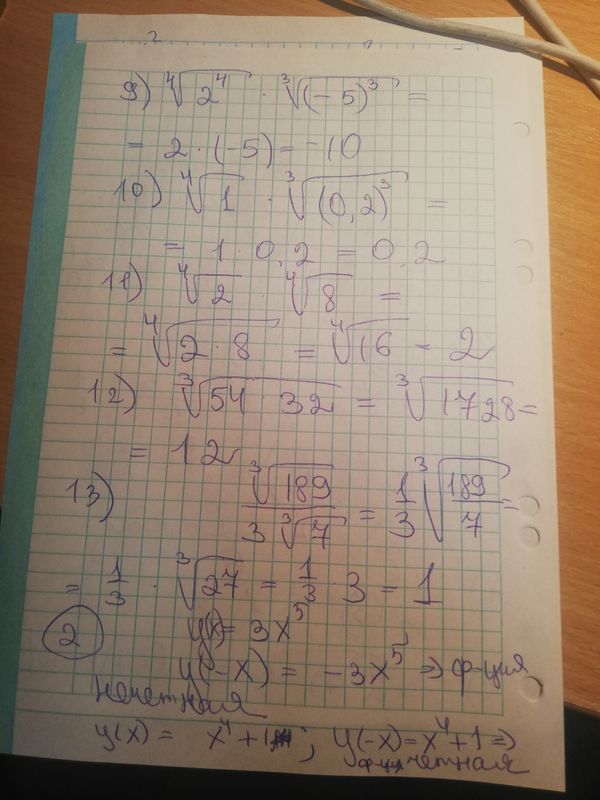 9) ⁴√2⁴ · ³√(-5)³ =
= 2 · (-5) = -10
10) ⁴√1 · ³√(0,2)³ =
= 1 · 0,2 = 0,2
11) ⁴√2 · ⁴√8 =
= ⁴√2 · 8 = ⁴√16 = 2
12) ³√54 32 = ³√1728 =
= 12
13) ³√189 / 3 ³√7 = 1/3 ³√189/7 =
= 1/3 · ³√27 = 1/3 3 = 1
2 y(x) = 3x⁵
y(-x) = -3x⁵ => ф-ция
нечетная
y(x) = x⁴ + 1 ; y(-x) = x⁴ + 1 =>
четная